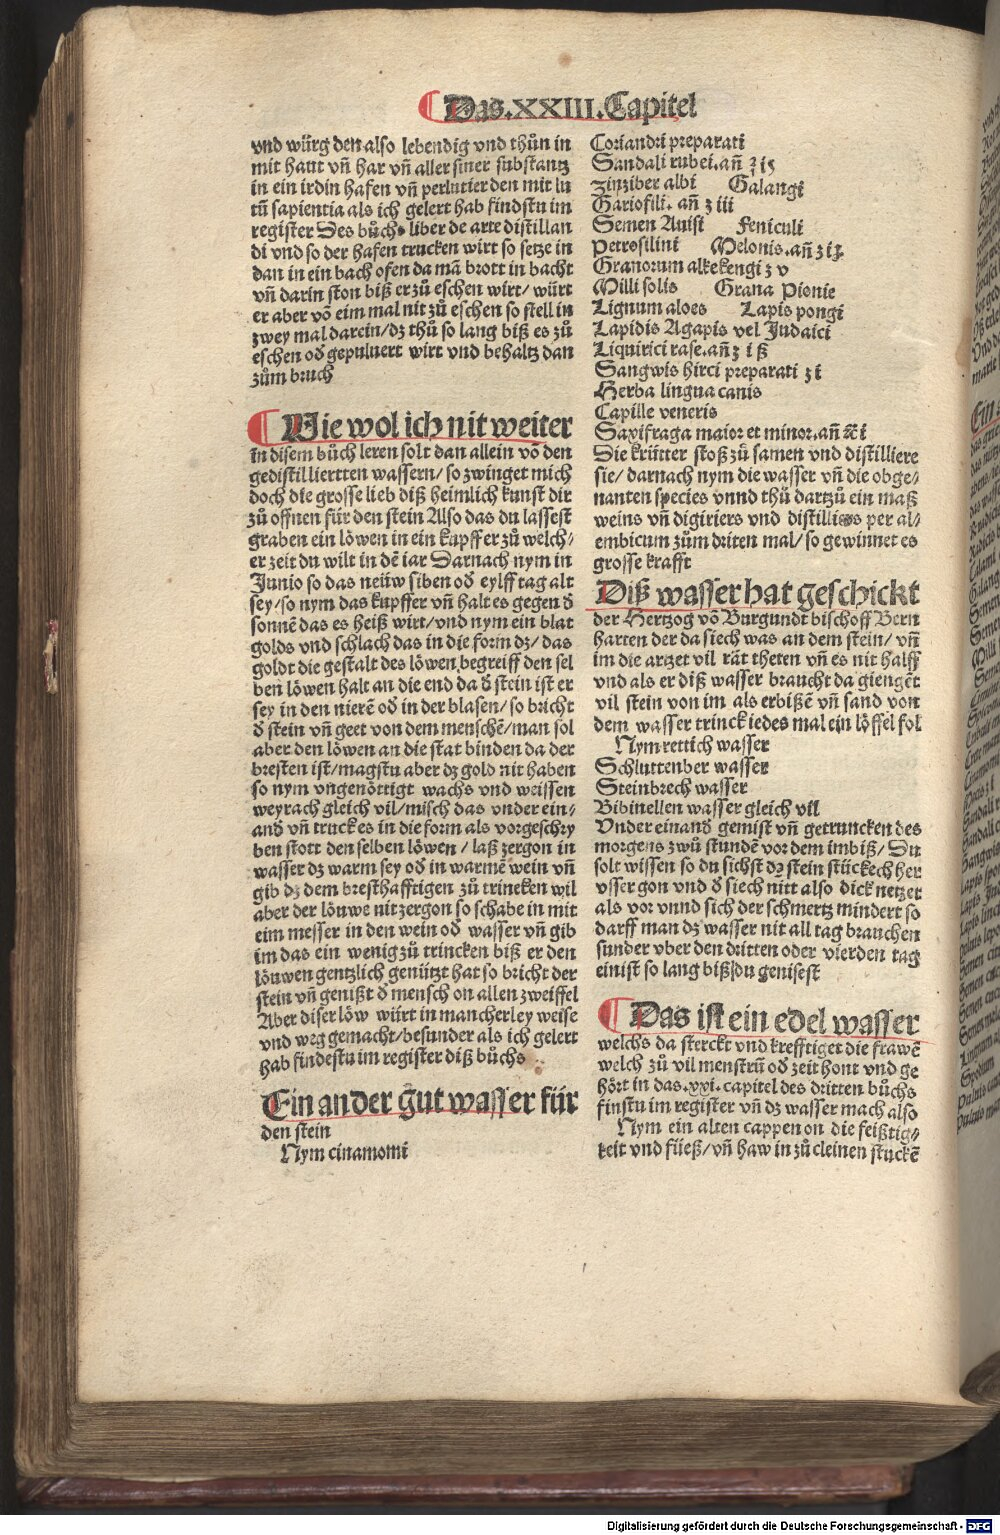 Das.XXIII.Capitel
vnd würg den also lebendig vnd thůn in
mit haut vñ har vñ aller siner substantz
in ein irdin hafen vñ perlutier den mit lu
tū sapientia als ich gelert hab findstu im
register Des bůchs liber de arte distillan
di vnd so der hafen trucken wirt so setze in
dan in ein bach ofen da mā brott in bacht
vñ darin ston biß er zů eschen wirt/ würt
er aber vō eim mal nit zů eschen so stell in
zwey mal darein/dz thů so lang biß es zů
eschen od gepuluert wirt vnd behaltz dan
zům bruch
Wie wol ich nit weiter
in disem bůch leren solt dan allein vō den
gedistilliertten wassern/ so zwinget mich
doch die grosse lieb diß heimlich kunst dir
zů offnen für den stein Also das du lassest
graben ein löwen in ein kupffer zů welch/
er zeit du wilt in dē iar Darnach nym in
Junio so das neüw siben od eylff tag alt
sey/so nym das kupffer vñ halt es gegen d
sonnē das es heiß wirt/vnd nym ein blat
golds vnd schlach das in die form dz/ das
goldt die gestalt des löwen begreiff den sel
ben löwen halt an die end da d stein ist er
sey in den nierē od in der blasen/ so bricht
d stein vñ geet von dem menschē/man sol
aber den löwen an die stat binden da der
bresten ist/magstu aber dz gold nit haben
so nym vngenöttigt wachs vnd weissen
weyrach gleich vil/misch das vnder ein/
and vñ truck es in die form als vorgeschry
ben stott den selben löwen / laß zergon in
wasser dz warm sey od in warmē wein vñ
gib dz dem bresthafftigen zů trincken wil
aber der löuwe nit zergon so schabe in mit
eim messer in den wein od wasser vñ gib
im das ein wenig zů trincken biß er den
löuwen gentzlich genützt hat so bricht der
stein vñ genißt d mensch on allen zweiffel
Aber diser löw würt in mancherley weise
vnd weg gemacht/besunder als ich gelert
hab findestu im register diß bůchs
Ein ander gut wasser für
den stein
Nym cinamomi
Coriandri preparati
Sandali rubei.añ ʒ is
Zinziber albi Galangi
Gariofili. añ ʒ iii
Semen Anisi Feniculi
Petrosilini Melonis.añ ʒ iʒ
Granorum alkekengi ʒ v
Milli solis Grana Pionie
Lignum aloes Lapis pongi
Lapidis Agapis vel Judaici
Liquirici rase.añ ʒ i ß
Sangwis hirci preparati ʒ i
Herba lingua canis
Capille veneris
Saxifraga maior et minor.añ i
Die krütter stoß zů samen vnd distilliere
sie/ darnach nym die wasser vñ die obge/
nanten species vnnd thů dartzů ein maß
weins vñ digiriers vnd distilliers per al/
embicum zům driten mal/ so gewinnet es
grosse krafft
Diß wasser hat geschickt
der Hertzog vō Burgundt bischoff Bern
harten der da siech was an dem stein/ vñ
im die artzet vil rät theten vñ es nit halff
vnd als er diß wasser braucht da giengēt
vil stein von im als erbißē vñ sand von
dem wasser trinck iedes mal ein löffel fol
Nym rettich wasser
Schluttenber wasser
Steinbrech wasser
Bibinellen wasser gleich vil
Vnder einand gemist vñ getruncken des
morgens zwů stundē vor dem imbiß/ Du
solt wissen so du sichst dz stein stückech her
vsser gon vnd d siech nitt also dick netzet
als vor vnnd sich der schmertz mindert so
darff man dz wasser nit all tag brauchen
sunder vber den dritten oder vierden tag
einist so lang biß du genisest
Das ist ein edel wasser
welchs da sterckt vnd krefftiget die frawē
welch zů vil menstrū od zeit hont vnd ge
hört in das.xxi.capitel des dritten bůchs
finstu im register vñ dz wasser mach also
Nym ein alten cappen on die feißtig/
keit vnd füeß/vñ haw in zů cleinen stuckē
Digitalisierung gefördert durch die Deutsche Forschungsgemeinschaft - DFG